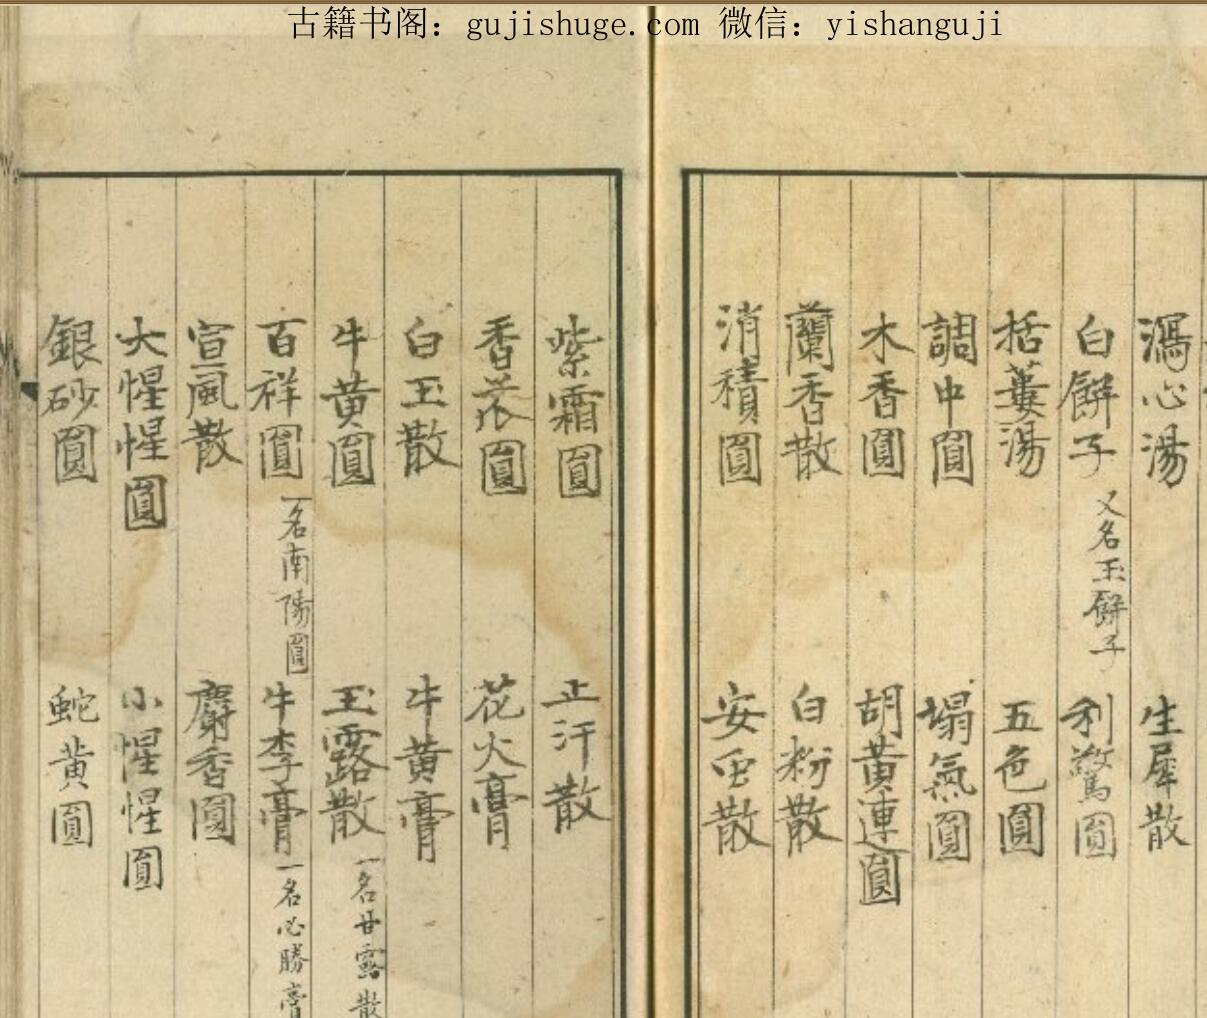 古籍书阁：gujishuge.com 微信：yishanguji
瀉心湯 生犀散
白餅子 又名玉餅子 利驚圓
括蔞湯 五色圓
調中圓 塌氣圓
木香圓 胡黃連圓
蘭香散 白粉散
消積圓 安虫散
紫霜圓 止汗散
香苽圓 花火膏
白玉散 牛黃膏
牛黃圓 玉露散 一名甘露散
百祥圓 一名南陽圓 牛李膏 一名必勝膏
宣風散 麝香圓
大惺惺圓 小惺惺圓
銀砂圓 蛇黃圓